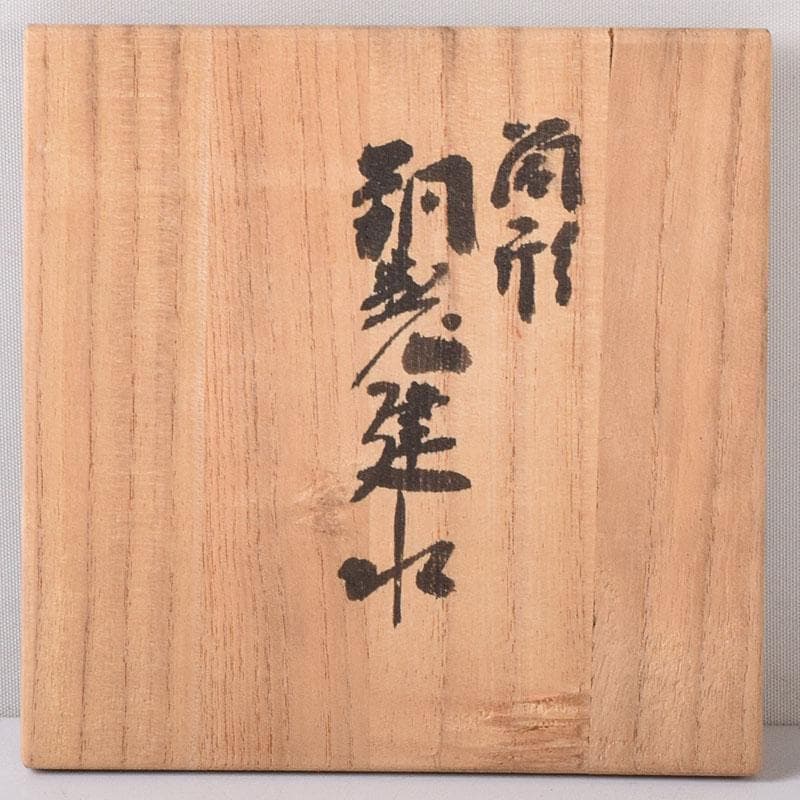 筒形
銅製建水